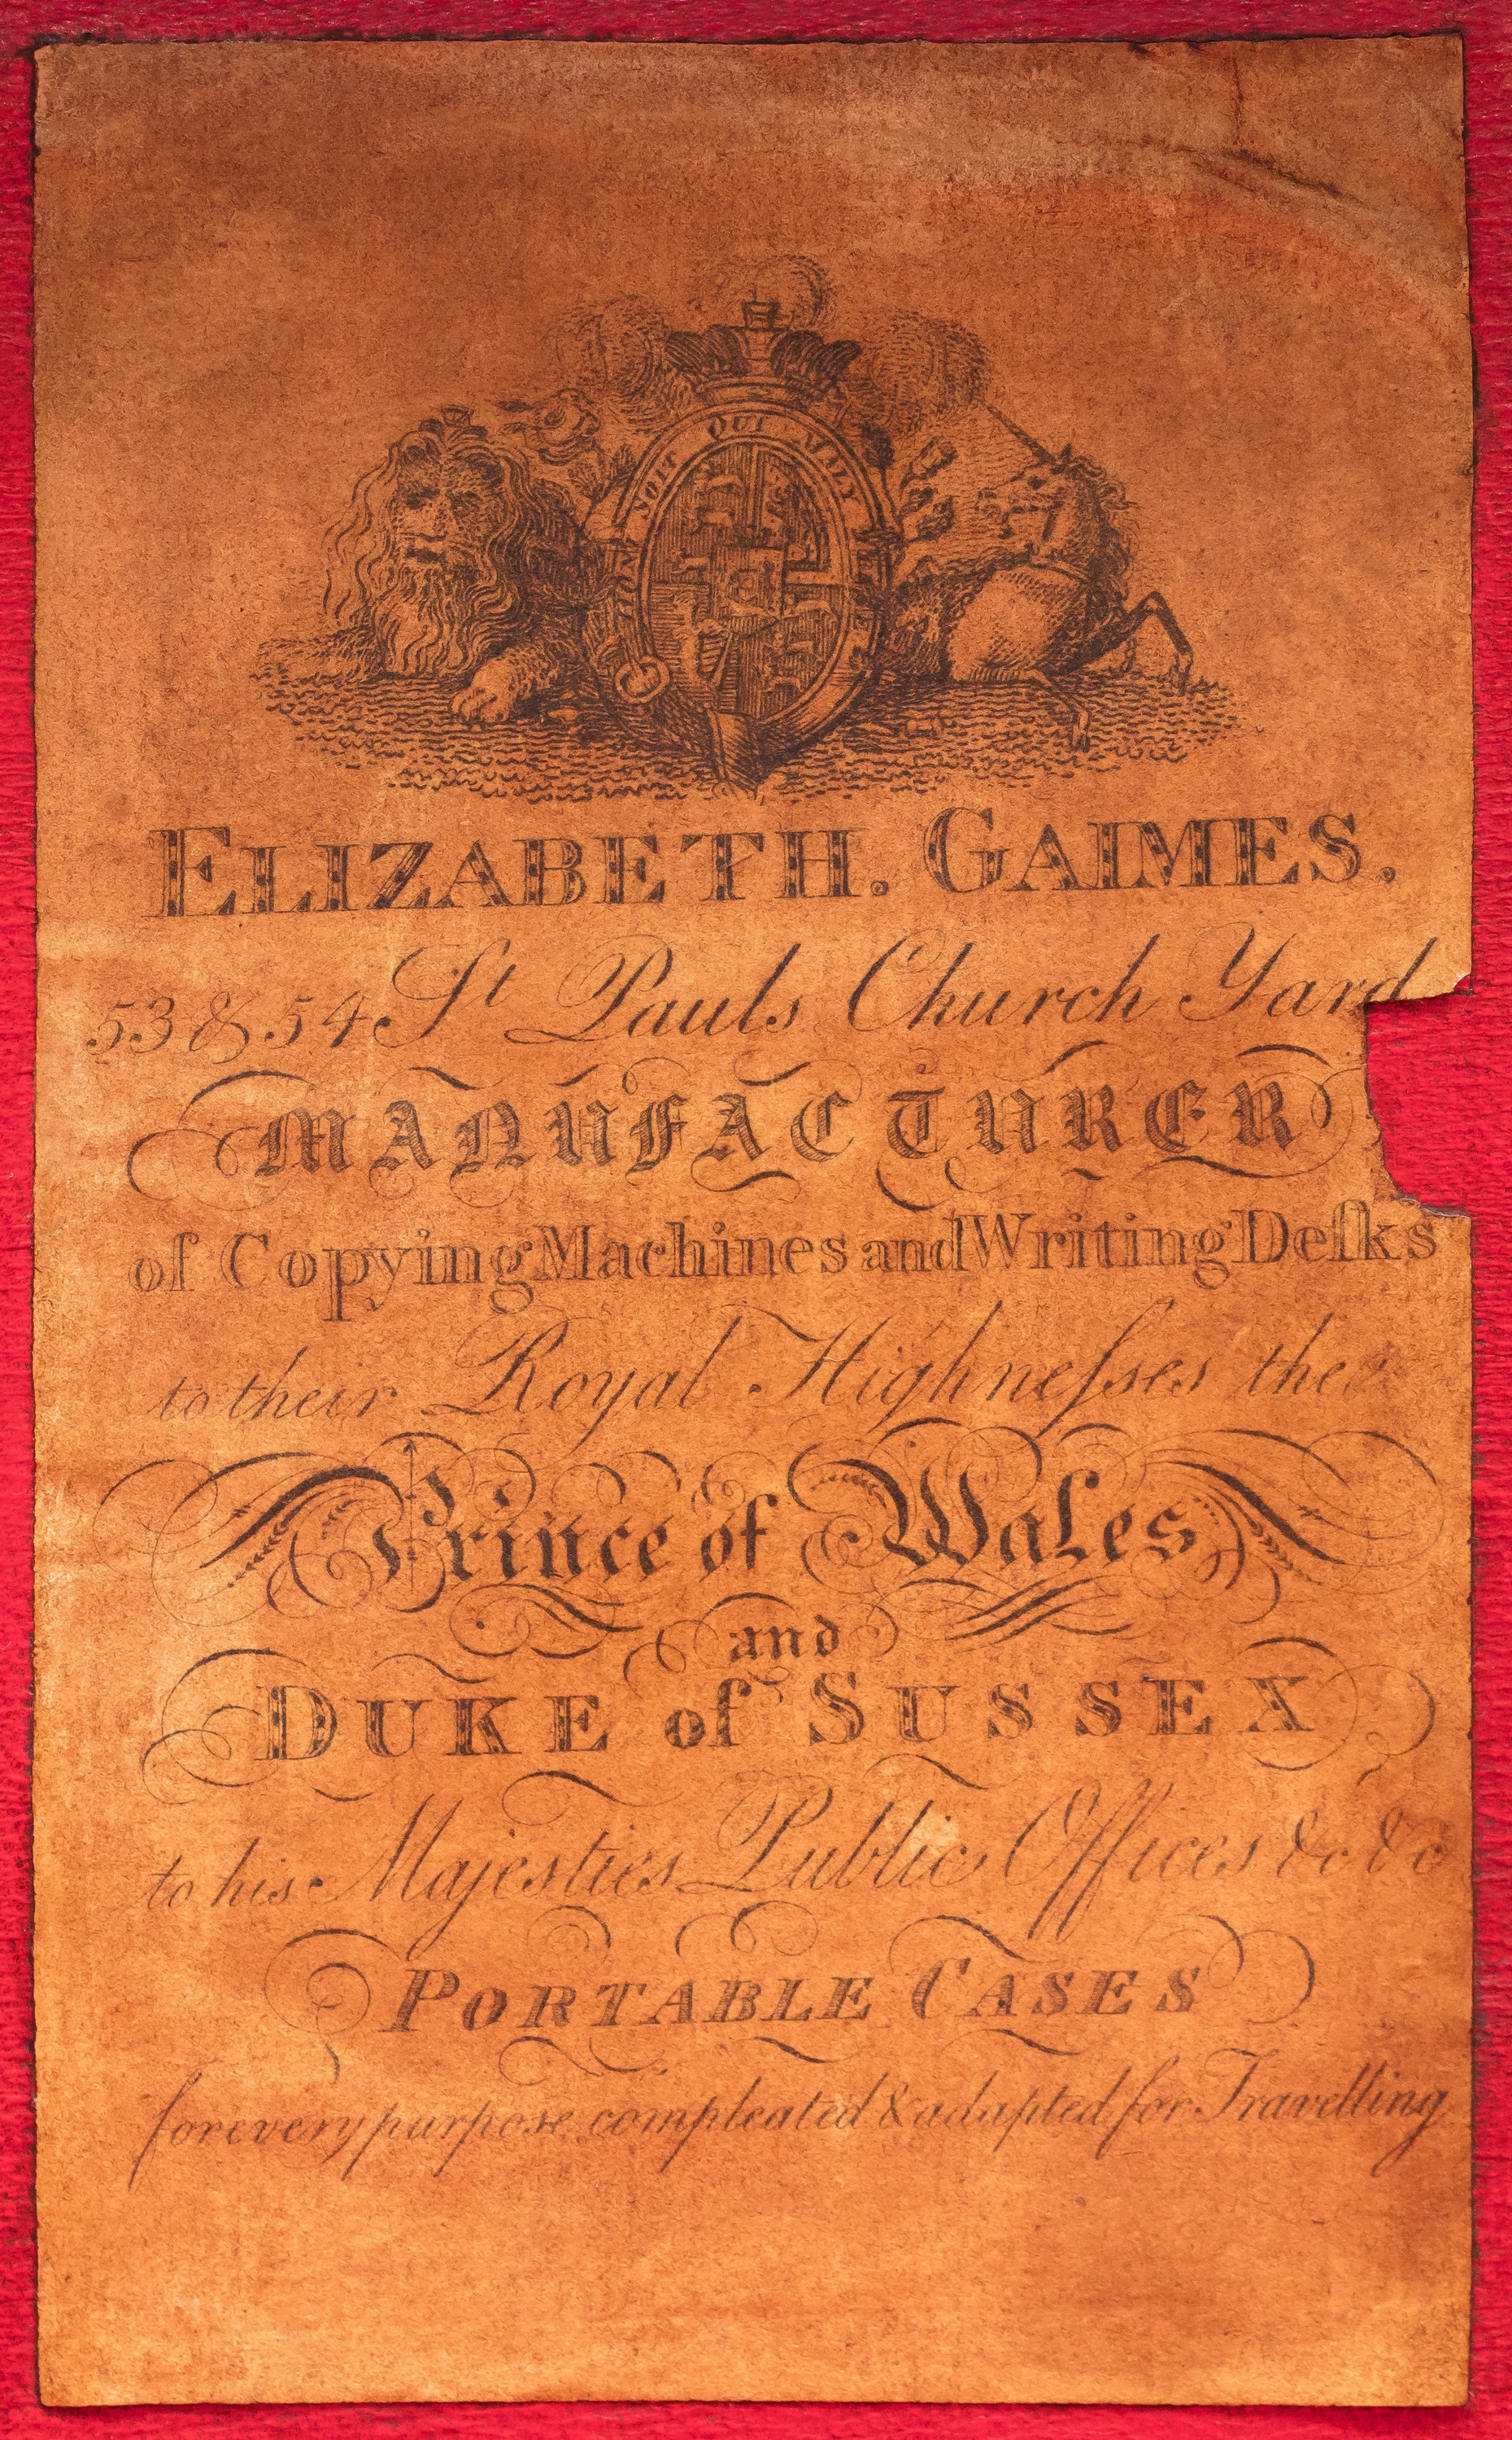 HONI SOIT QUI MAL Y PENSE
ELIZABETH. GAIMES.
53 & 54 St Pauls Church Yard
MANUFACTURER
of Copying Machines and Writing Deſks
to their Royal Highneſses the
Prince of Wales
and
DUKE of SUSSEX
to his Majesties Public Offices &c &c
PORTABLE CASES
for every purpose compleated & adapted for Travelling